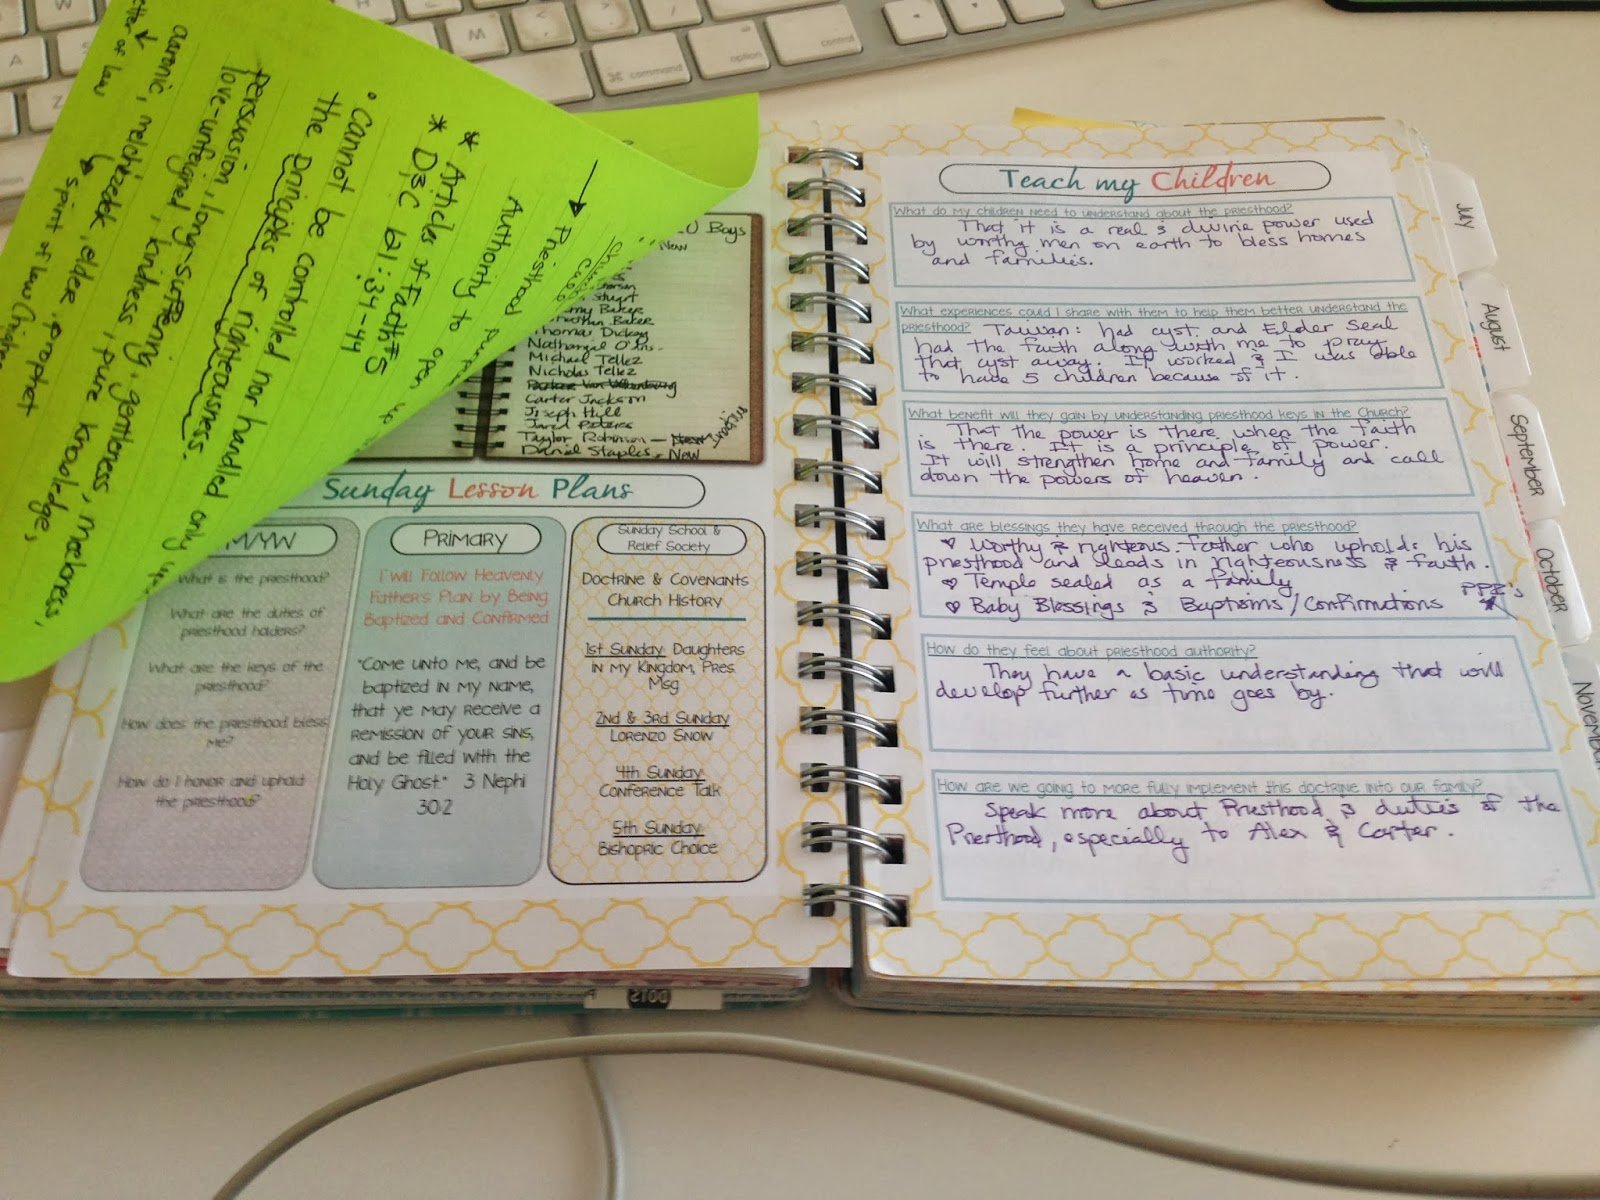 → Priesthood
Authority to open up
* Articles of Faith #5
* D&C 121:34-44
• Cannot be controlled nor handled only up
the principles of righteousness
persuasion, long-suffering, gentleness, meekness,
love-unfeigned, kindness, pure knowledge,
aaronic, melchizedek, elder, prophet
of law
spirit of law
Boys
New
Stuart
Baker
Baker
Thomas Dickey
Nathanial
Michael Tellez
Nicholas Tellez
Carter Jackson
Joseph Hyll
Jared Peters
Taylor Robinson -
Daniel Staples - New
Sunday Lesson Plans
M/YW
What is the priesthood?
What are the duties of
priesthood holders?
What are the keys of the
priesthood?
How does the priesthood bless
me?
How do I honor and uphold
the priesthood?
Primary
I will Follow Heavenly
Father's Plan by Being
Baptized and Confirmed
"Come unto me, and be
baptized in my name,
that ye may receive a
remission of your sins,
and be filled with the
Holy Ghost." 3 Nephi
30:2
Sunday School &
Relief Society
Doctrine & Covenants
Church History
1st Sunday: Daughters
in my Kingdom, Pres.
Msg
2nd & 3rd Sunday
Lorenzo Snow
4th Sunday:
Conference Talk
5th Sunday:
Bishopric Choice
Teach my Children
What do my children need to understand about the priesthood?
That it is a real & divine power used
by worthy men on earth to bless homes
and families.
What experiences could I share with them to help them better understand the
priesthood? Taiwan: had cyst and Elder Seal
had the faith along with me to pray
that cyst away. It worked & I was able
to have 5 children because of it.
What benefit will they gain by understanding priesthood keys in the Church?
That the power is there when the faith
is there. It is a principle of power.
It will strengthen home and family and call
down the powers of heaven.
What are blessings they have received through the priesthood?
♥ Worthy & righteous father who upholds his
priesthood and leads in righteousness & faith.
♥ Temple sealed as a family
♥ Baby Blessings & Baptisms/Confirmations PPI's
How do they feel about priesthood authority?
They have a basic understanding that will
develop further as time goes by.
How are we going to more fully implement this doctrine into our family?
Speak more about Priesthood & duties of the
Priesthood, especially to Alex & Carter.
July
August
September
October
November
M
command
option
control
option